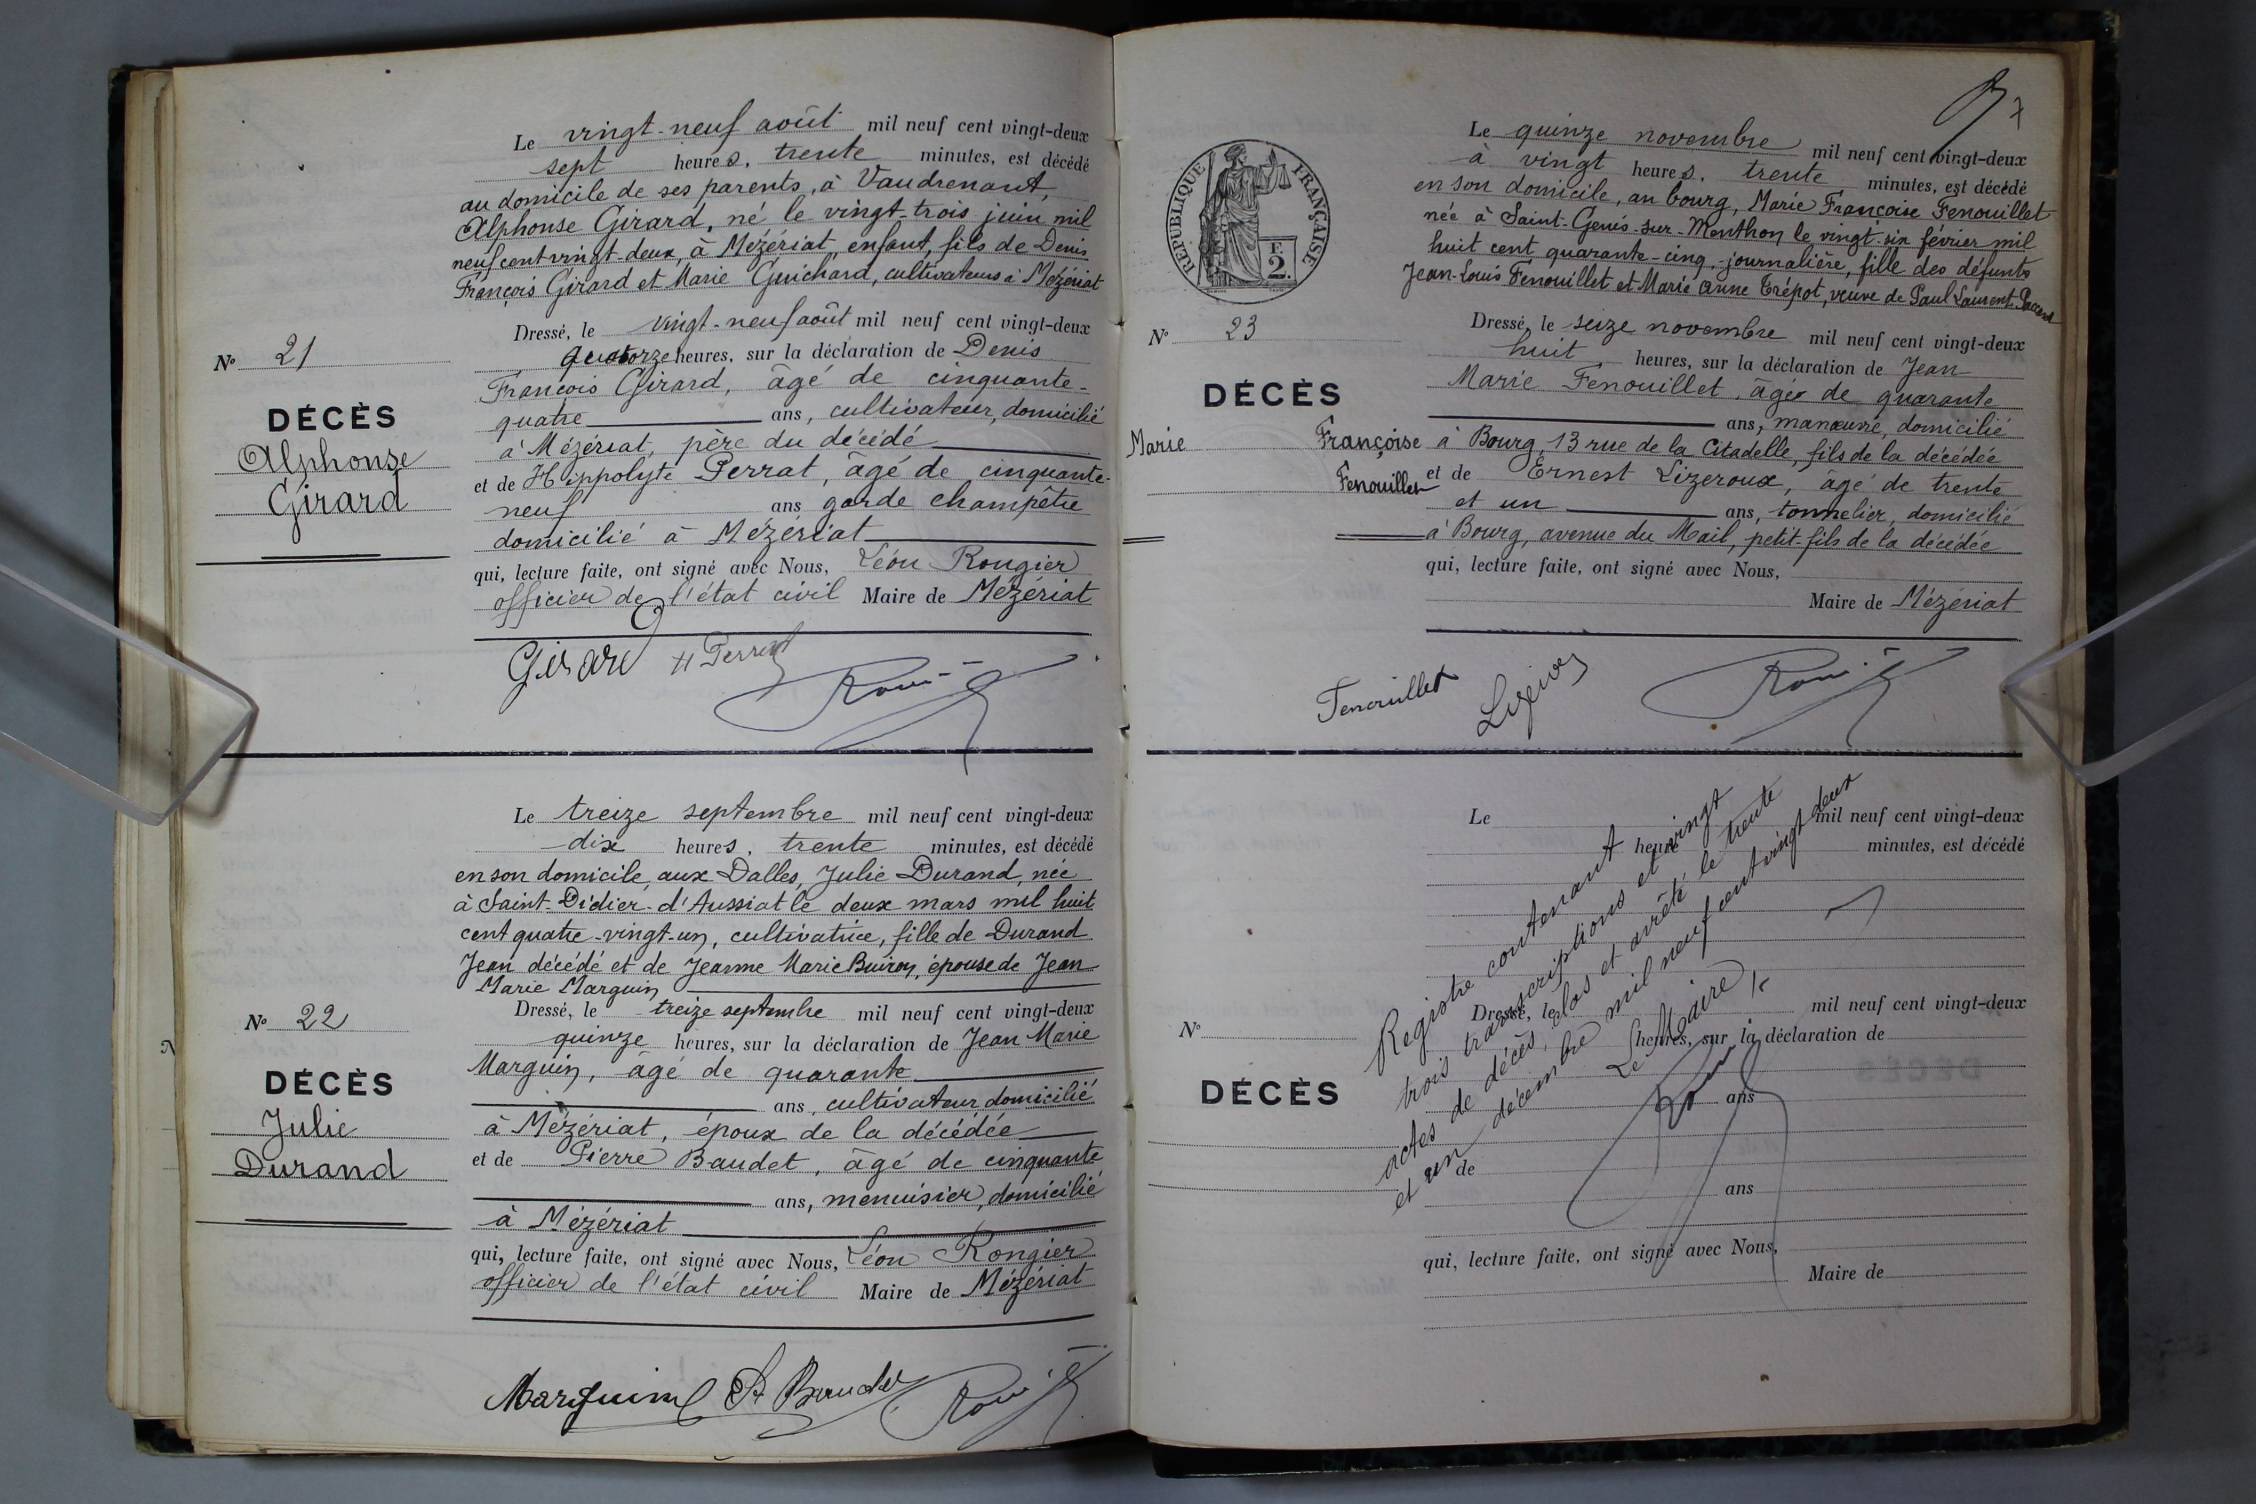 Le vingt-neuf août mil neuf cent vingt-deux
sept heures, trente minutes, est décédé
au domicile de ses parents, à Vaudrenant,
Alphonse Girard, né le vingt-trois juin mil
neuf cent vingt-deux, à Mézériat, enfant, fils de Denis
François Girard et Marie Guichard, cultivateurs à Mézériat
Dressé, le vingt-neuf août mil neuf cent vingt-deux
quatorze heures, sur la déclaration de Denis
François Girard, âgé de cinquante-
quatre ans, cultivateur, domicilié
à Mézériat, père du décédé
et de Hippolyte Perrat, âgé de cinquante-
neuf ans garde champêtre
domicilié à Mézériat
qui, lecture faite, ont signé avec Nous, Léon Rongier
officier de l'état civil Maire de Mézériat
N° 21
DÉCÈS
Alphonse
Girard
Girard H Perrat
Le treize septembre mil neuf cent vingt-deux
dix heures, trente minutes, est décédé
en son domicile, aux Dalles, Julie Durand, née
à Saint-Didier-d'Aussiat le deux mars mil huit
cent quatre-vingt-un, cultivatrice, fille de Durand
Jean décédé et de Jeanne Marie Buiron, épouse de Jean
Marie Marguin
Dressé, le treize septembre mil neuf cent vingt-deux
quinze heures, sur la déclaration de Jean Marie
Marguin, âgé de quarante
ans, cultivateur domicilié
à Mézériat, époux de la décédée
et de Pierre Baudet, âgé de cinquante
ans, menuisier, domicilié
à Mézériat
qui, lecture faite, ont signé avec Nous, Léon Rongier
officier de l'état civil Maire de Mézériat
N° 22
DÉCÈS
Julie
Durand
Marguin Baudet
7
RÉPUBLIQUE FRANÇAISE
F.
2.
Le quinze novembre mil neuf cent vingt-deux
à vingt heures, trente minutes, est décédé
en son domicile, au bourg, Marie Françoise Fenouillet
née à Saint-Genis-sur-Menthon le vingt-six février mil
huit cent quarante-cinq, journalière, fille des défunts
Jean-Louis Fenouillet et Marie Anne Trépot, veuve de Paul Laurent
Dressé, le seize novembre mil neuf cent vingt-deux
huit heures, sur la déclaration de Jean
Marie Fenouillet, âgé de quarante
ans, manœuvre, domicilié
à Bourg, 13 rue de la Citadelle, fils de la décédée
et de Ernest Lizeroux, âgé de trente
et un ans, tonnelier, domicilié
à Bourg, avenue du Mail, petit-fils de la décédée
qui, lecture faite, ont signé avec Nous,
Maire de Mézériat
N° 23
DÉCÈS
Marie Françoise
Fenouillet
Fenouillet
Le mil neuf cent vingt-deux
heure minutes, est décédé
Dressé, le mil neuf cent vingt-deux
heures, sur la déclaration de
ans
de
ans
qui, lecture faite, ont signé avec Nous,
Maire de
N°
DÉCÈS
Registre contenant vingt
trois transcriptions et
actes de décès, clos et arrêté le trente
et un décembre mil neuf cent vingt deux
Le Maire